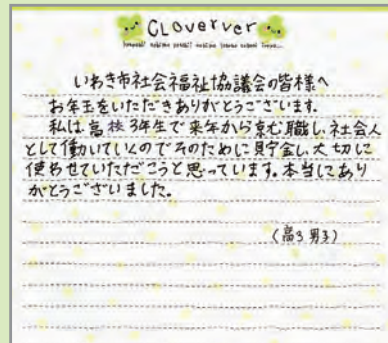 CLoverver
いわき市社会福祉協議会の皆様へ
お年玉をいただきありがとうございます。
私は高校3年生で来年から就職し、社会人
として働いていくのでそのために貯金し、大切に
使わせていただこうと思っています。本当にあり
がとうございました。
(高3男子)